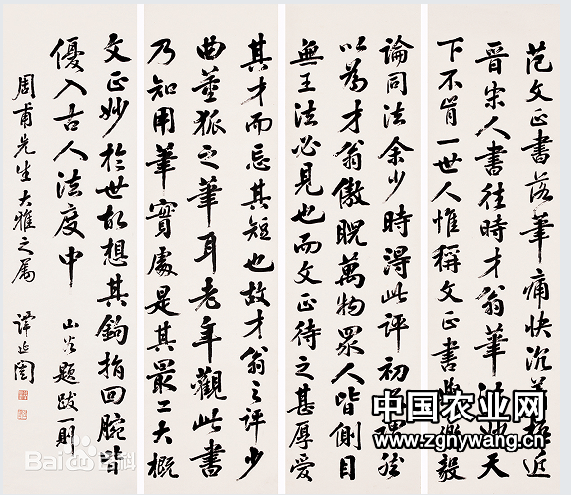 范文正書落筆痛快沉著極近
晉宋人書往時才翁筆天
下不肯一世人惟稱文正書毅
論同法余少時得此評初然
以為才翁傲睨萬物眾人皆側目
無王法必見也而文正待之甚厚愛
其才而忌其短也故才翁之評少
曲董狐之筆耳老年觀此書
乃知用筆實處是其最工大概
文正妙於世故想其鉤指回腕皆
優入古人法度中 山谷題跋一則
周甫先生大雅之屬 譚延闓
中国农业网
www.zgnywang.cn
Bai百科